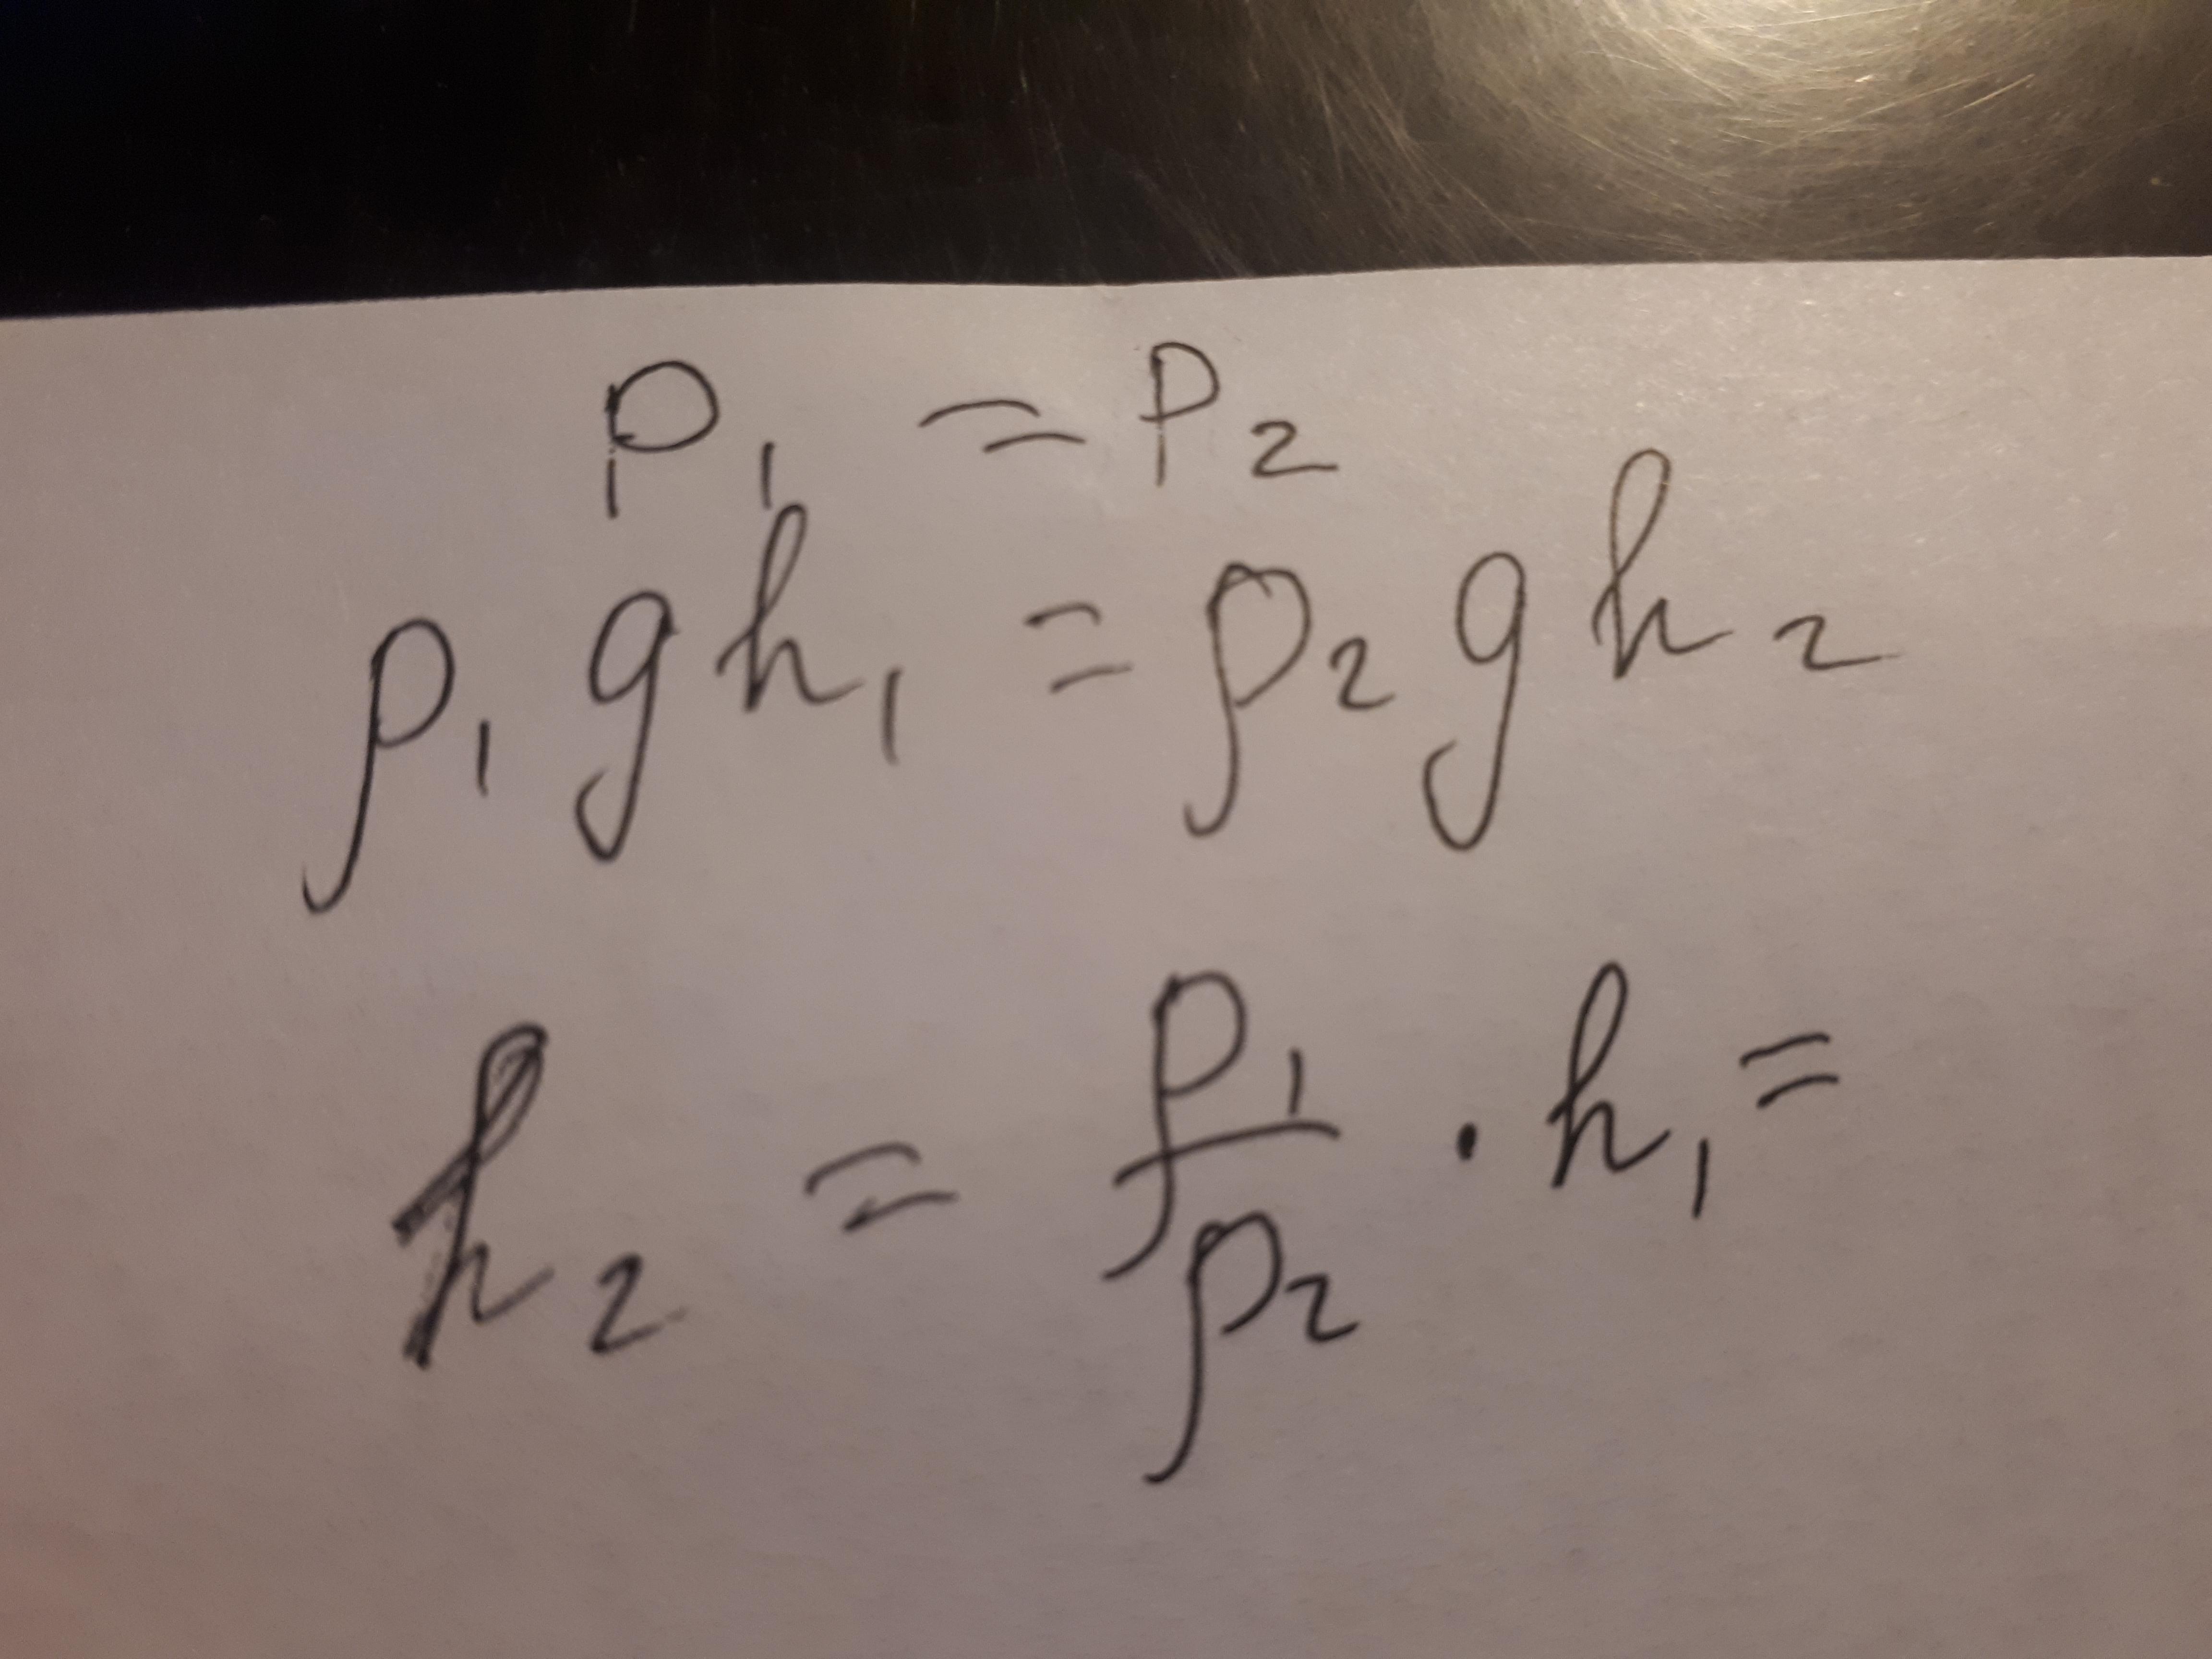 P₁ = P₂
ρ₁gh₁ = ρ₂gh₂
h₂ = ρ₁/ρ₂ · h₁ =